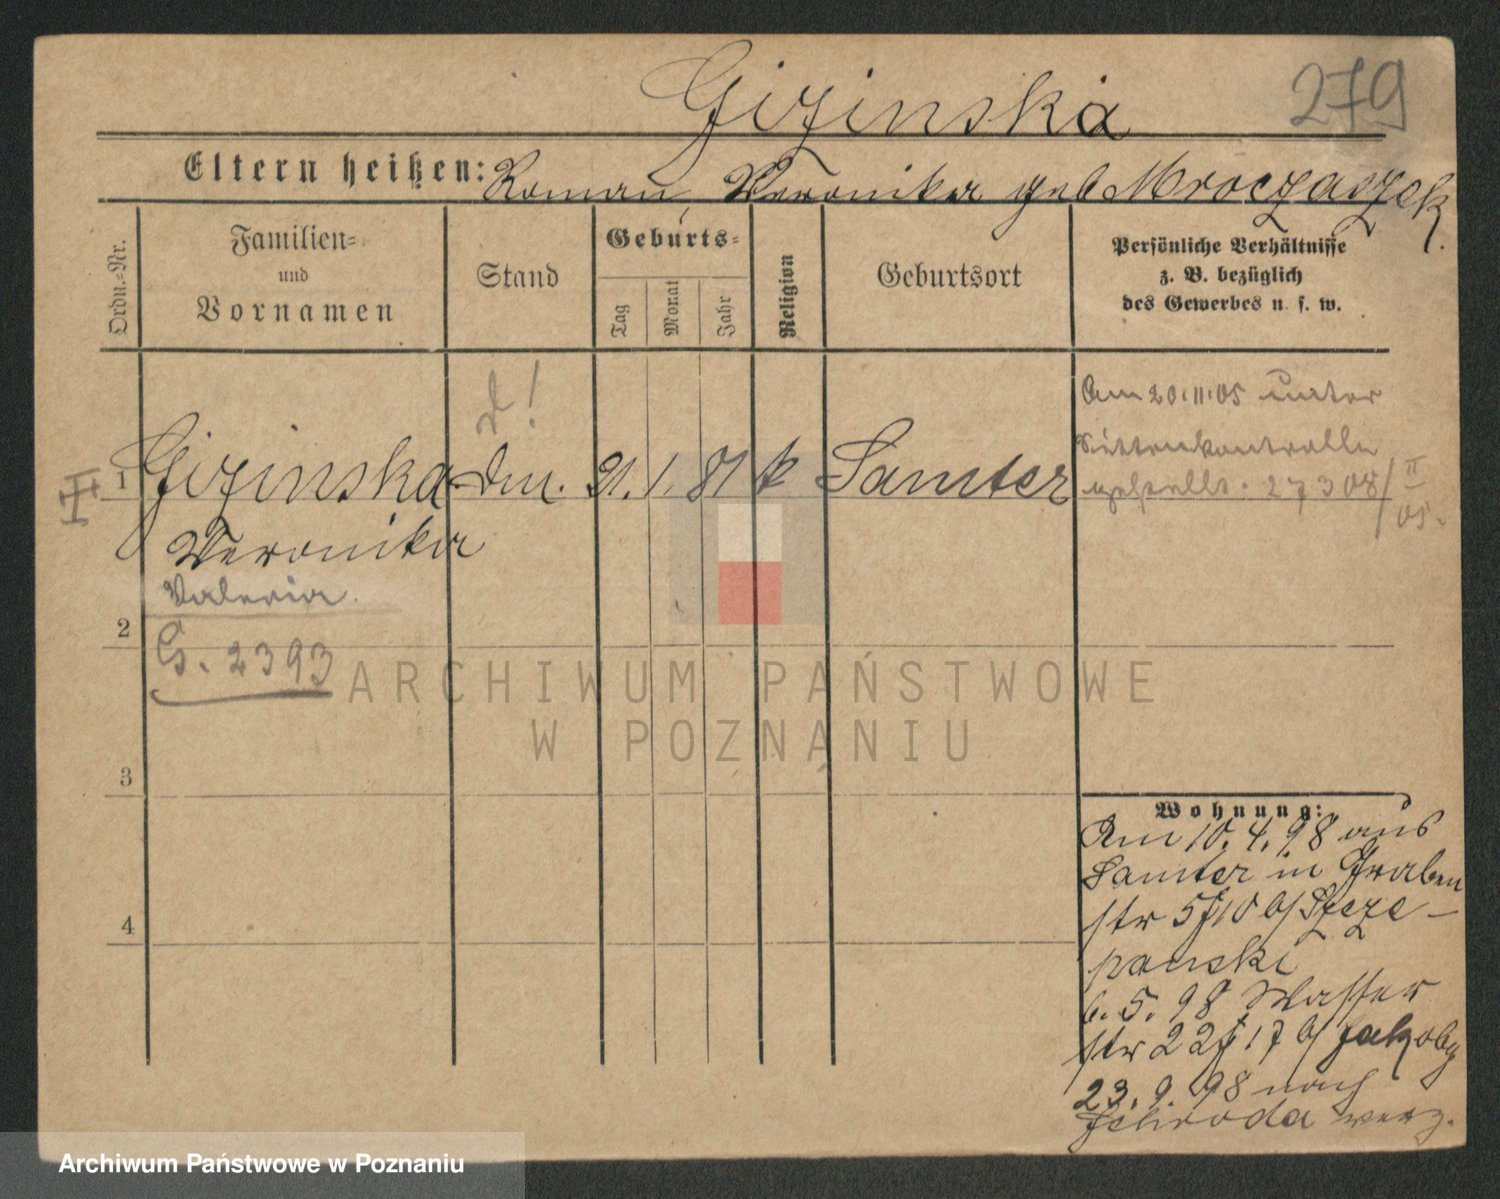 Gizinska
279
Eltern heißen: Roman Veronika geb Mroczaszek
Ordn.-Nr.
Familien-
und
Vornamen
Stand
Geburts-
Tag
Monat
Jahr
Religion
Geburtsort
Persönliche Verhältnisse
z. B. bezüglich
des Gewerbes u. s. w.
Am 20.11.05 unter
Sittenkontrolle
gestellt. 27308/II
05.
II
1 Gizinska 21. 1. 81 k Samter
Veronika
Valeria.
2
G. 2393
3
4
Wohnung:
Am 10. 4. 98 aus
Samter in Graben
str 5/10 b/ Szcze-
panski
6. 5. 98 Wasser
str 22/17 b/ Jakoby
23. 9. 98 nach
Schroda verz.
ARCHIWUM PAŃSTWOWE
W POZNANIU
Archiwum Państwowe w Poznaniu